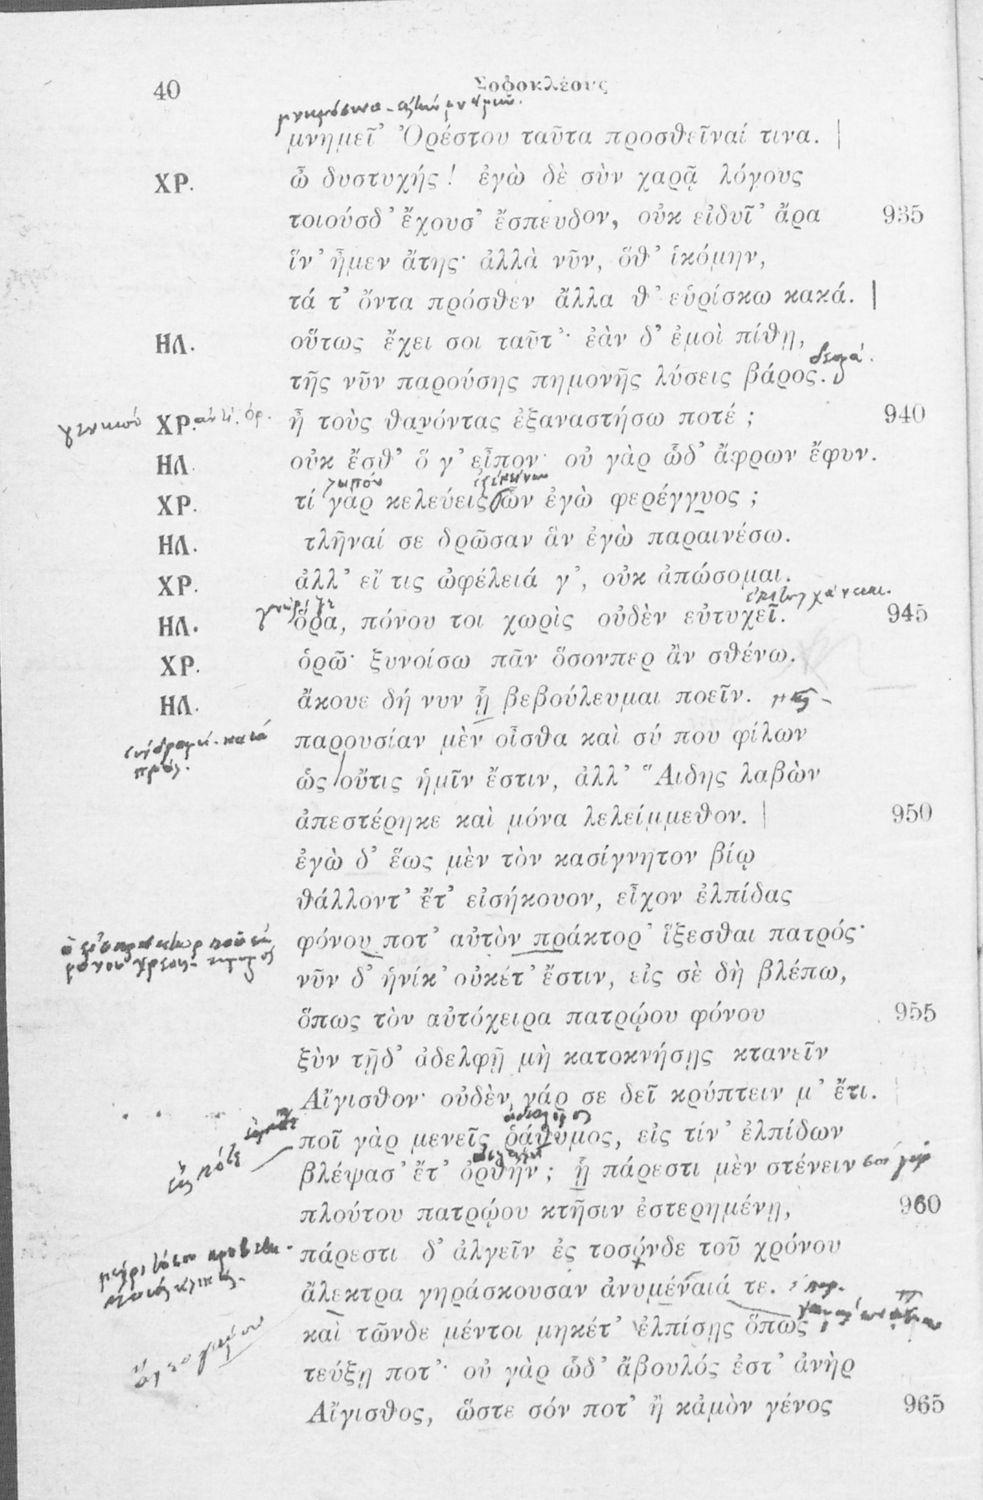 40
Σοφοκλέους
μνημεῖ' Ὀρέστου ταῦτα προσθεῖναί τινα.
ΧΡ. ὦ δυστυχής! ἐγὼ δὲ σὺν χαρᾷ λόγους
τοιούσδ' ἔχουσ' ἔσπευδον, οὐκ εἰδυῖ' ἄρα 935
ἵν' ἦμεν ἄτης· ἀλλὰ νῦν, ὅθ' ἱκόμην,
τά τ' ὄντα πρόσθεν ἄλλα θ' εὑρίσκω κακά.
ΗΛ. οὕτως ἔχει σοι ταῦτ'· ἐὰν δ' ἐμοὶ πίθῃ,
τῆς νῦν παρούσης πημονῆς λύσεις βάρος.
ΧΡ. ἦ τοὺς θανόντας ἐξαναστήσω ποτέ; 940
ΗΛ οὐκ ἔσθ' ὅ γ' εἶπον· οὐ γὰρ ὧδ' ἄφρων ἔφυν.
ΧΡ. τί γὰρ κελεύεις ὧν ἐγὼ φερέγγυος;
ΗΛ. τλῆναί σε δρῶσαν ἃν ἐγὼ παραινέσω.
ΧΡ. ἀλλ' εἴ τις ὠφέλειά γ', οὐκ ἀπώσομαι.
ΗΛ. ὅρα, πόνου τοι χωρὶς οὐδὲν εὐτυχεῖ. 945
ΧΡ. ὁρῶ· ξυνοίσω πᾶν ὅσονπερ ἂν σθένω.
ΗΛ. ἄκουε δή νυν ᾗ βεβούλευμαι ποεῖν.
παρουσίαν μὲν οἶσθα καὶ σύ που φίλων
ὡς οὔτις ἡμῖν ἔστιν, ἀλλ' Ἅιδης λαβὼν
ἀπεστέρηκε καὶ μόνα λελείμμεθον. 950
ἐγὼ δ' ἕως μὲν τὸν κασίγνητον βίῳ
θάλλοντ' ἔτ' εἰσήκουον, εἶχον ἐλπίδας
φόνου ποτ' αὐτὸν πράκτορ' ἵξεσθαι πατρός·
νῦν δ' ἡνίκ' οὐκέτ' ἔστιν, εἰς σὲ δὴ βλέπω,
ὅπως τὸν αὐτόχειρα πατρῴου φόνου 955
ξὺν τῇδ' ἀδελφῇ μὴ κατοκνήσῃς κτανεῖν
Αἴγισθον· οὐδὲν γάρ σε δεῖ κρύπτειν μ' ἔτι.
ποῖ γὰρ μενεῖς ῥάθυμος, εἰς τίν' ἐλπίδων
βλέψασ' ἔτ' ὀρθήν; ᾗ πάρεστι μὲν στένειν
πλούτου πατρῴου κτῆσιν ἐστερημένῃ, 960
πάρεστι δ' ἀλγεῖν ἐς τοσόνδε τοῦ χρόνου
ἄλεκτρα γηράσκουσαν ἀνυμέναιά τε.
καὶ τῶνδε μέντοι μηκέτ' ἐλπίσῃς ὅπως
τεύξῃ ποτ'· οὐ γὰρ ὧδ' ἄβουλός ἐστ' ἀνὴρ
Αἴγισθος, ὥστε σόν ποτ' ἢ κἀμὸν γένος 965